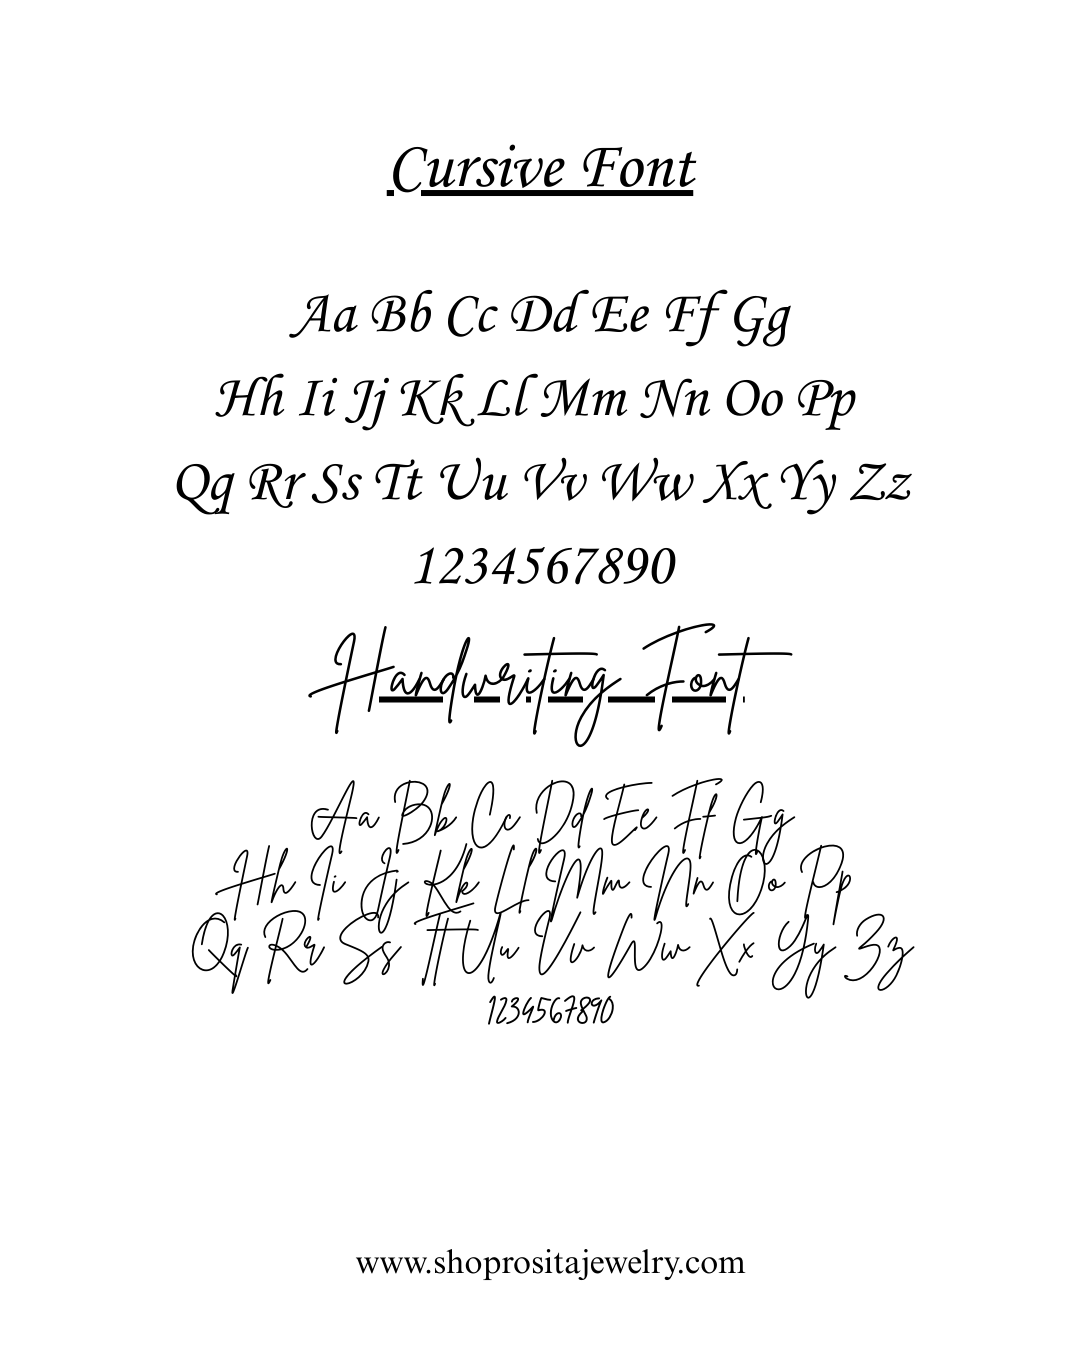 Cursive Font
Aa Bb Cc Dd Ee Ff Gg
Hh Ii Jj Kk Ll Mm Nn Oo Pp
Qq Rr Ss Tt Uu Vv Ww Xx Yy Zz
1234567890
Handwriting Font
Aa Bb Cc Dd Ee Ff Gg
Hh Ii Jj Kk Ll Mm Nn Oo Pp
Qq Rr Ss Tt Uu Vv Ww Xx Yy Zz
1234567890
www.shoprositajewelry.com